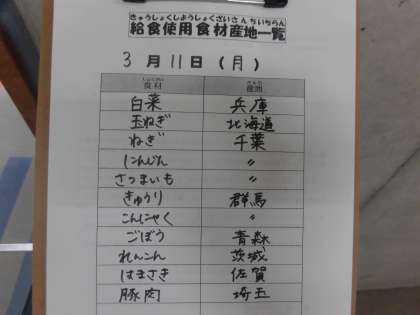 きゅうしょくしようしょくざいさんちいちらん
給食使用食材産地一覧
3月11日(月)
しょくざい さんち
食材 産地
白菜 兵庫
玉ねぎ 北海道
ねぎ 千葉
にんじん 〃
さつまいも 〃
きゅうり 群馬
こんにゃく 〃
ごぼう 青森
れんこん 茨城
はまさき 佐賀
豚肉 埼玉